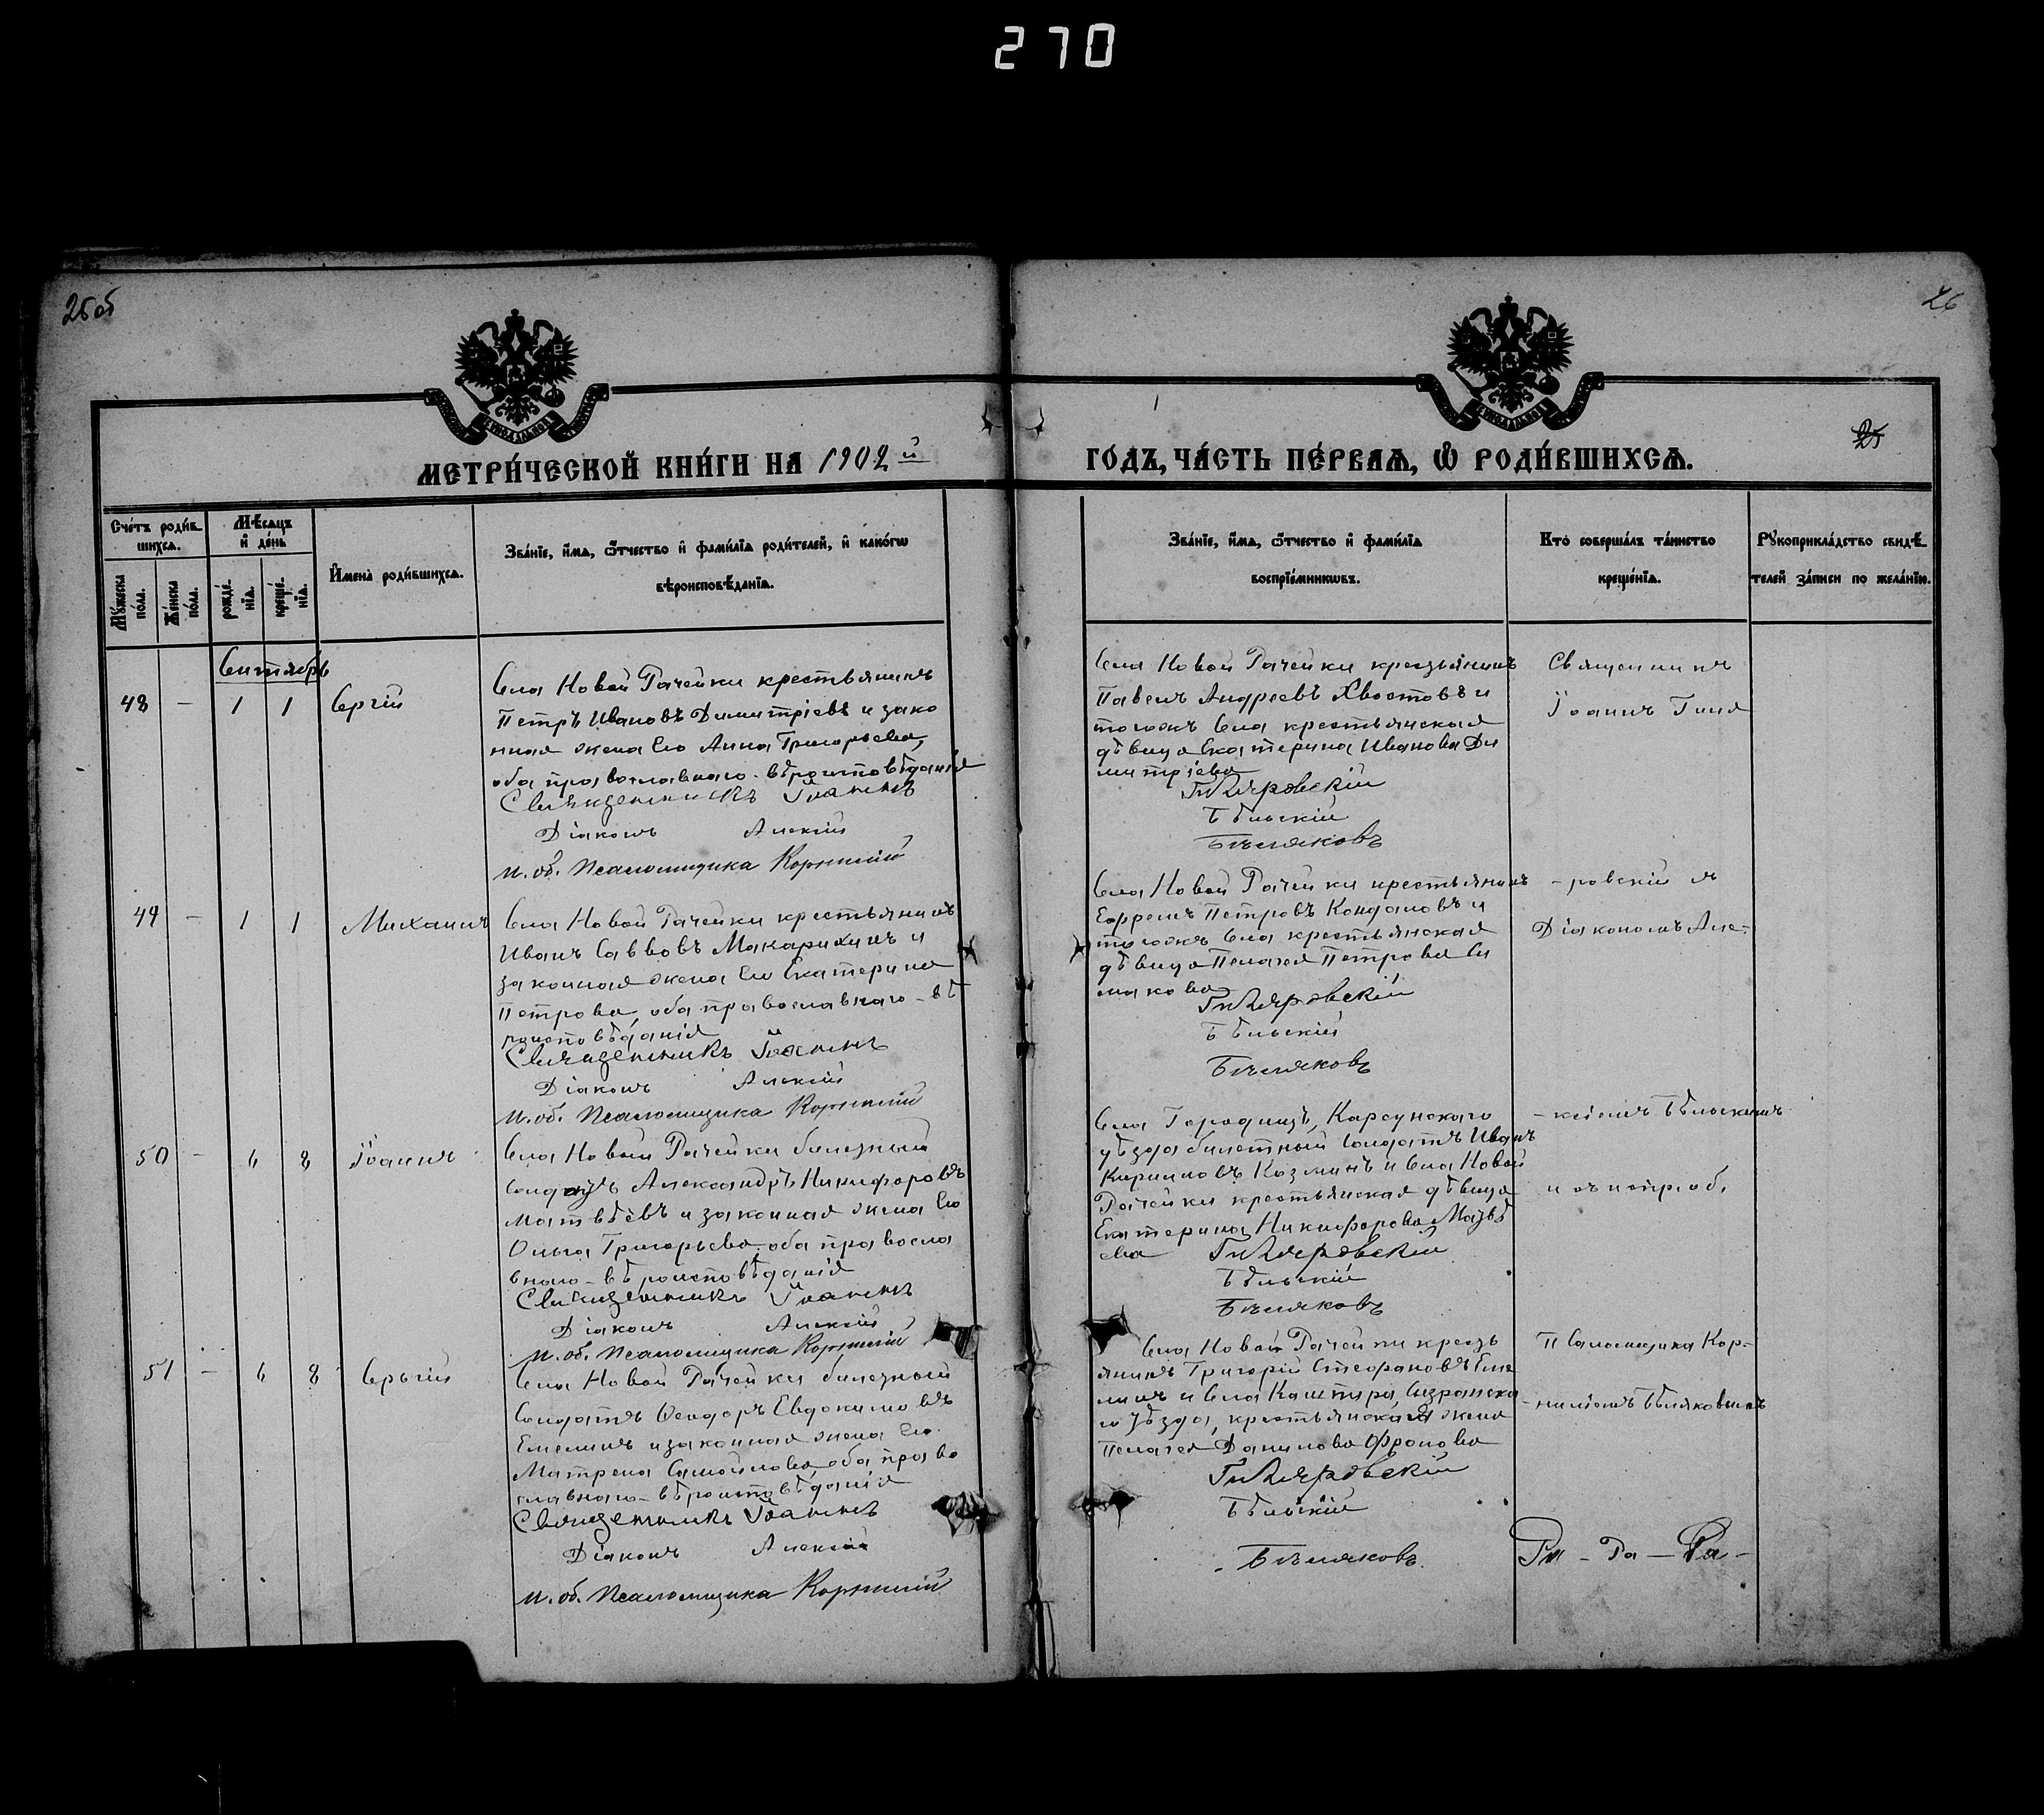 270
25 об
26
25
МЕТРИ́ЧЕСКОЙ КНИ́ГИ НА 1902 й
ГОДЪ, ЧА́СТЬ ПЕ́РВАѦ, Ѽ РОДИ́ВШИХСѦ.
Сче́тъ роди́в-
шихсѧ.
Мѣ́сѧцъ
и҆ де́нь
Мꙋ́жеска
по́ла.
Же́нска
по́ла.
рожде́-
нїѧ.
креще́-
нїѧ.
И҆мена̀ роди́вшихсѧ.
Зва́нїе, и҆́мѧ, ѻ҆́тчество и҆ фами́лїѧ роди́телей, и҆ како́гѡ
вѣроисповѣ́данїѧ.
Зва́нїе, и҆́мѧ, ѻ҆́тчество и҆ фами́лїѧ
воспрїе́мникѡвъ.
Кто̀ соверша́лъ та́инство
креще́нїѧ.
Рꙋкоприкла́дство свидѣ́-
телей за́писи по жела́нїю.
Сентябрь
48 — 1 1 Сергій
Села Новой Рачейки крестьянинъ
Петръ Ивановъ Димитріевъ и зако
нная жена его Анна Григорьева,
оба православнаго-вѣроисповѣданія
Священникъ Іоаннъ
Діаконъ Алексій
и. об. Псаломщика Корнилій
Села Новой Рачейки крестьянинъ
Павелъ Андреевъ Хвостовъ и
тогожъ села крестьянская
дѣвица Екатерина Иванова Ди
митріева
Гиляровскій
Бѣльскій
Бѣляковъ
Священникъ
Іоаннъ Гиля
49 — 1 1 Михаилъ
Села Новой Рачейки крестьянинъ
Иванъ Савковъ Макарихинъ и
законная жена его Екатерина
Петрова, оба православнаго-вѣ
роисповѣданія
Священникъ Іоаннъ
Діаконъ Алексій
и. об. Псаломщика Корнилій
Села Новой Рачейки крестьянинъ
Ефремъ Петровъ Кондаковъ и
тогожъ села крестьянская
дѣвица Пелагея Петрова Си
макова
Гиляровскій
Бѣльскій
Бѣляковъ
-ровскій съ
Діакономъ Але-
50 — 6 8 Іоаннъ
Села Новой Рачейки билетный
солдатъ Александръ Никифоровъ
Матвѣевъ и законная жена его
Ольга Григорьева, оба правосла
внаго-вѣроисповѣданія
Священникъ Іоаннъ
Діаконъ Алексій
и. об. Псаломщика Корнилій
Села Городищъ, Карсунскаго
уѣзда билетный солдатъ Иванъ
Кирилловъ Козминъ и села Новой
Рачейки крестьянская дѣвица
Екатерина Никифорова Матвѣ
ева
Гиляровскій
Бѣльскій
Бѣляковъ
-ксіемъ Бѣльскимъ
и съ испр. об.
51 — 6 8 Сергій
Села Новой Рачейки билетный
солдатъ Ѳеодоръ Евдокимовъ
Емелинъ и законная жена его
Матрена Самойлова, оба право
славнаго-вѣроисповѣданія
Священникъ Іоаннъ
Діаконъ Алексій
и. об. Псаломщика Корнилій
Села Новой Рачейки кресть
янинъ Григорій Стефановъ Еме
линъ и села Каштыра, Сызранска
го уѣзда, крестьянская жена
Пелагея Данилова Фролова
Гиляровскій
Бѣльскій
Бѣляковъ.
Псаломщика Кор-
-ниліемъ Бѣляковымъ